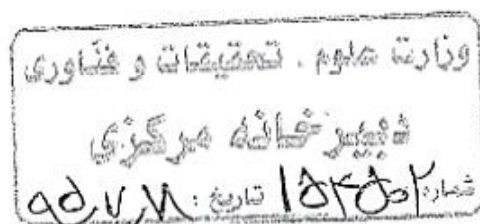 وزارت علوم ، تحقیقات و فناوری
دبیرخانه مرکزی
شماره: تاریخ: